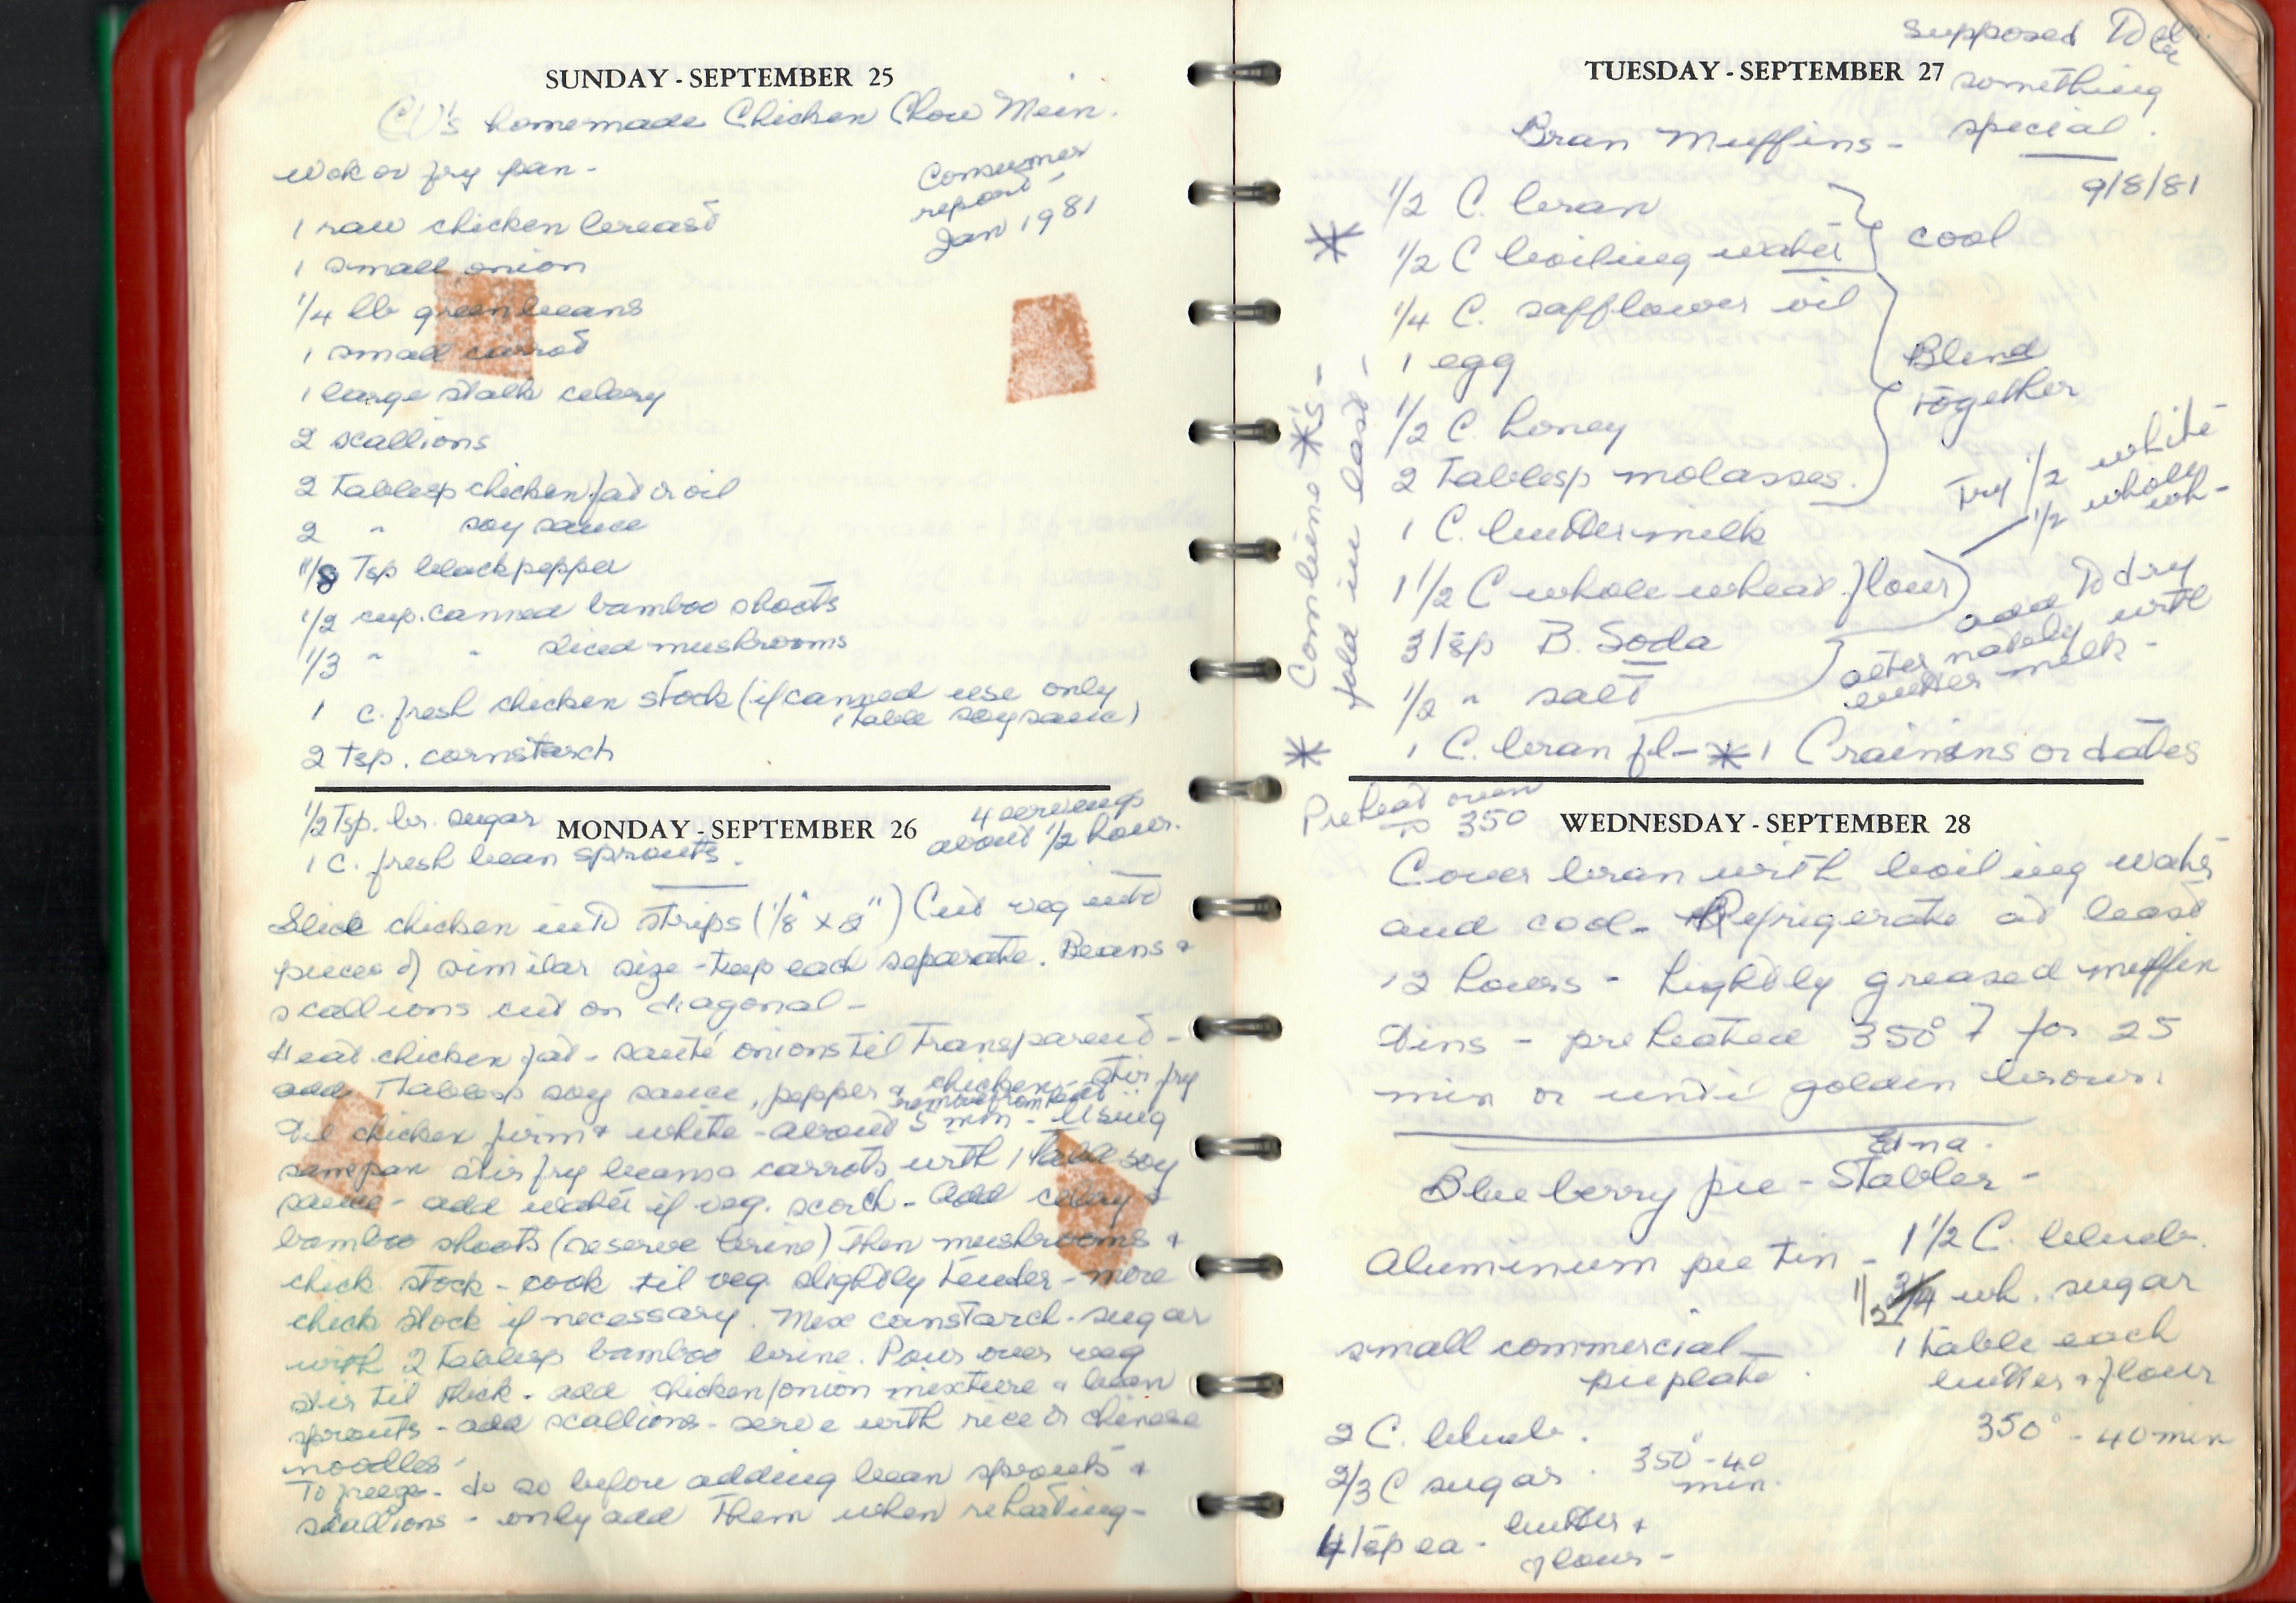 SUNDAY - SEPTEMBER 25
CU's homemade Chicken Chow Mein.
wok or fry pan -
Consumer
report -
Jan 1981
1 raw chicken breast
1 small onion
1/4 lb green beans
1 small carrot
1 large stalk celery
2 scallions
2 Tablesp chicken fat or oil
2 " soy sauce
1/8 Tsp black pepper
1/2 cup. canned bamboo shoots
1/3 " " sliced mushrooms
1 c. fresh chicken stock (if canned use only
1 table soy sauce)
2 tsp. cornstarch
1/2 Tsp. br. sugar
4 servings
about 1/2 hour.
MONDAY - SEPTEMBER 26
1 C. fresh bean sprouts.
Slice chicken into strips (1/8" x 2") Cut veg into
pieces of similar size - keep each separate. Beans &
scallions cut on diagonal -
Heat chicken fat - sauté onions til transparent -
add 1 Tablesp soy sauce, pepper & chicken - stir fry
remove from heat
til chicken firm & white - about 5 min - Using
same pan stir fry beans & carrots with 1 table soy
sauce - add water if veg. scorch - Add celery &
bamboo shoots (reserve brine) then mushrooms &
chick stock - cook til veg slightly tender - more
chick stock if necessary. Mix cornstarch - sugar
with 2 Tablesp bamboo brine. Pour over veg
stir til thick - add chicken/onion mixture & bean
sprouts - add scallions - serve with rice or chinese
noodles.
To freeze - do so before adding bean sprouts &
scallions - only add them when reheating -
supposed to be
TUESDAY - SEPTEMBER 27
something
special.
Bran Muffins -
9/8/81
1/2 C. bran
cool
* 1/2 C boiling water
1/4 C. safflower oil
1 egg
Blend
together
1/2 C. honey
2 Tablesp molasses.
1 C. buttermilk
Try 1/2 white
1/2 whole
wh-
1 1/2 C whole wheat flour
3 tsp B. Soda
1/2 " salt
add to dry
alternately with
buttermilk -
* 1 C. bran fl - * 1 C raisins or dates
Combine *'s -
fold in last,
Preheat oven
to 350
WEDNESDAY - SEPTEMBER 28
Cover bran with boiling water
and cool - Refrigerate at least
12 hours - Lightly greased muffin
tins - preheated 350° F for 25
min or until golden brown
Edna.
Blueberry pie - Stabler -
Aluminum pie tin -
1 1/2 C. blueb.
1/2 3/4 wh. sugar
1 table each
butter & flour
350° - 40 min
small commercial -
pie plate.
2 C. blueb.
2/3 C sugar.
350° - 40
min.
4 tsp ea - butter &
flour -